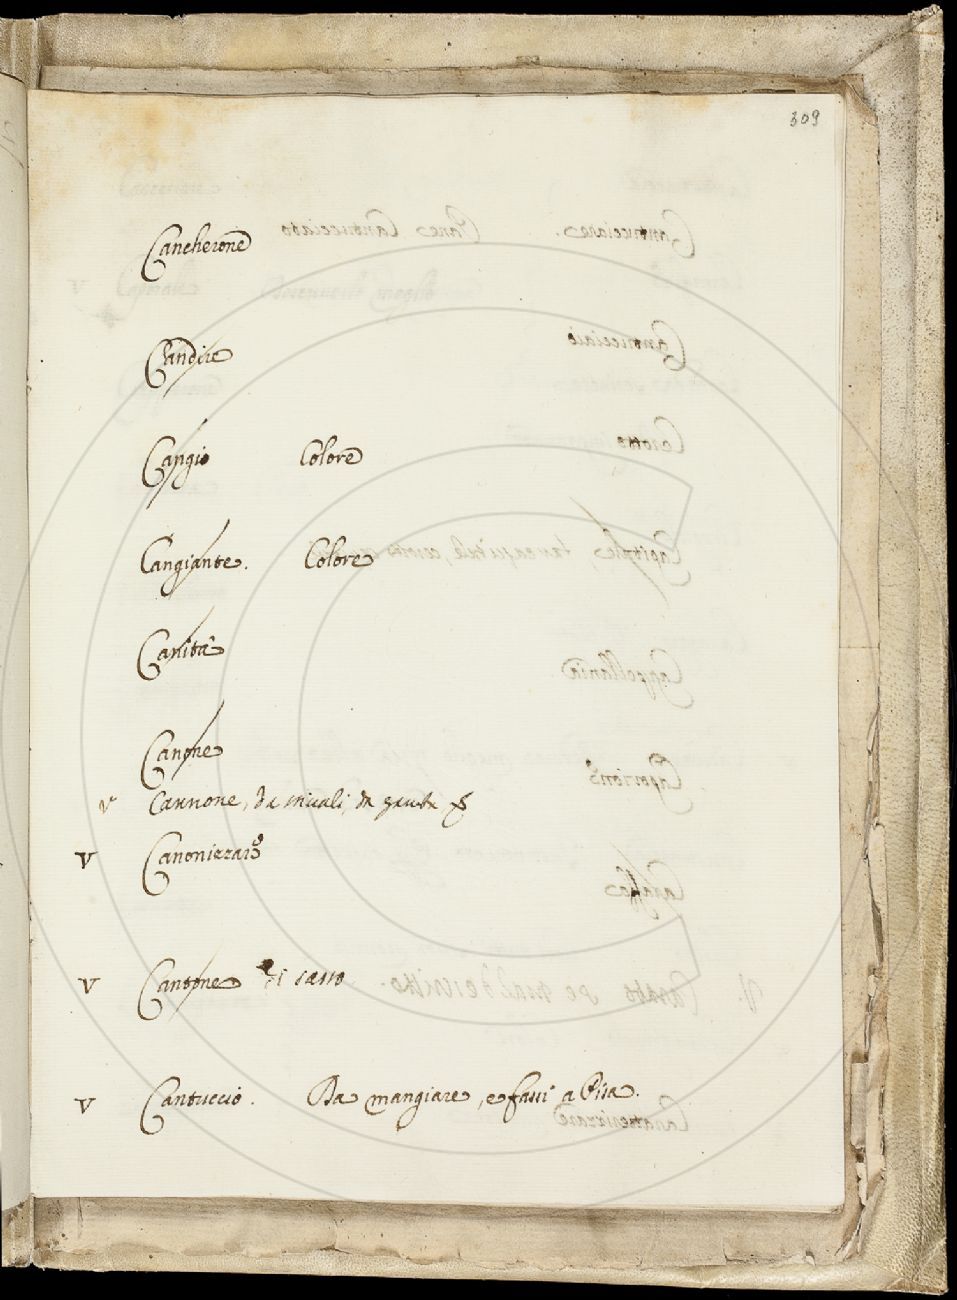 309
Cancherone
Candire
Cangio Colore
Cangiante. Colore
Canità
Canone
v Cannone, da stivali, da
V Canonizzaio
V Cantone di sasso
V Cantuccio. Da mangiare, e fassi a Pisa.